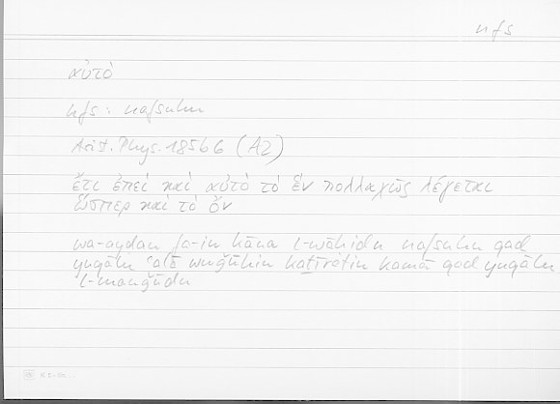 nfs
αὐτὸ
nfs: nafsuhu
Arist. Phys. 185b6 (A2)
ἔτι ἐπεὶ καὶ αὐτὸ τὸ ἓν πολλαχῶς λέγεται
ὥσπερ καὶ τὸ ὄν
wa-ayḍan fa-in kāna l-wāḥidu nafsuhu qad
yuqālu ʿalā wuǧūhin kaṯīratin kamā qad yuqālu
l-mawǧūdu